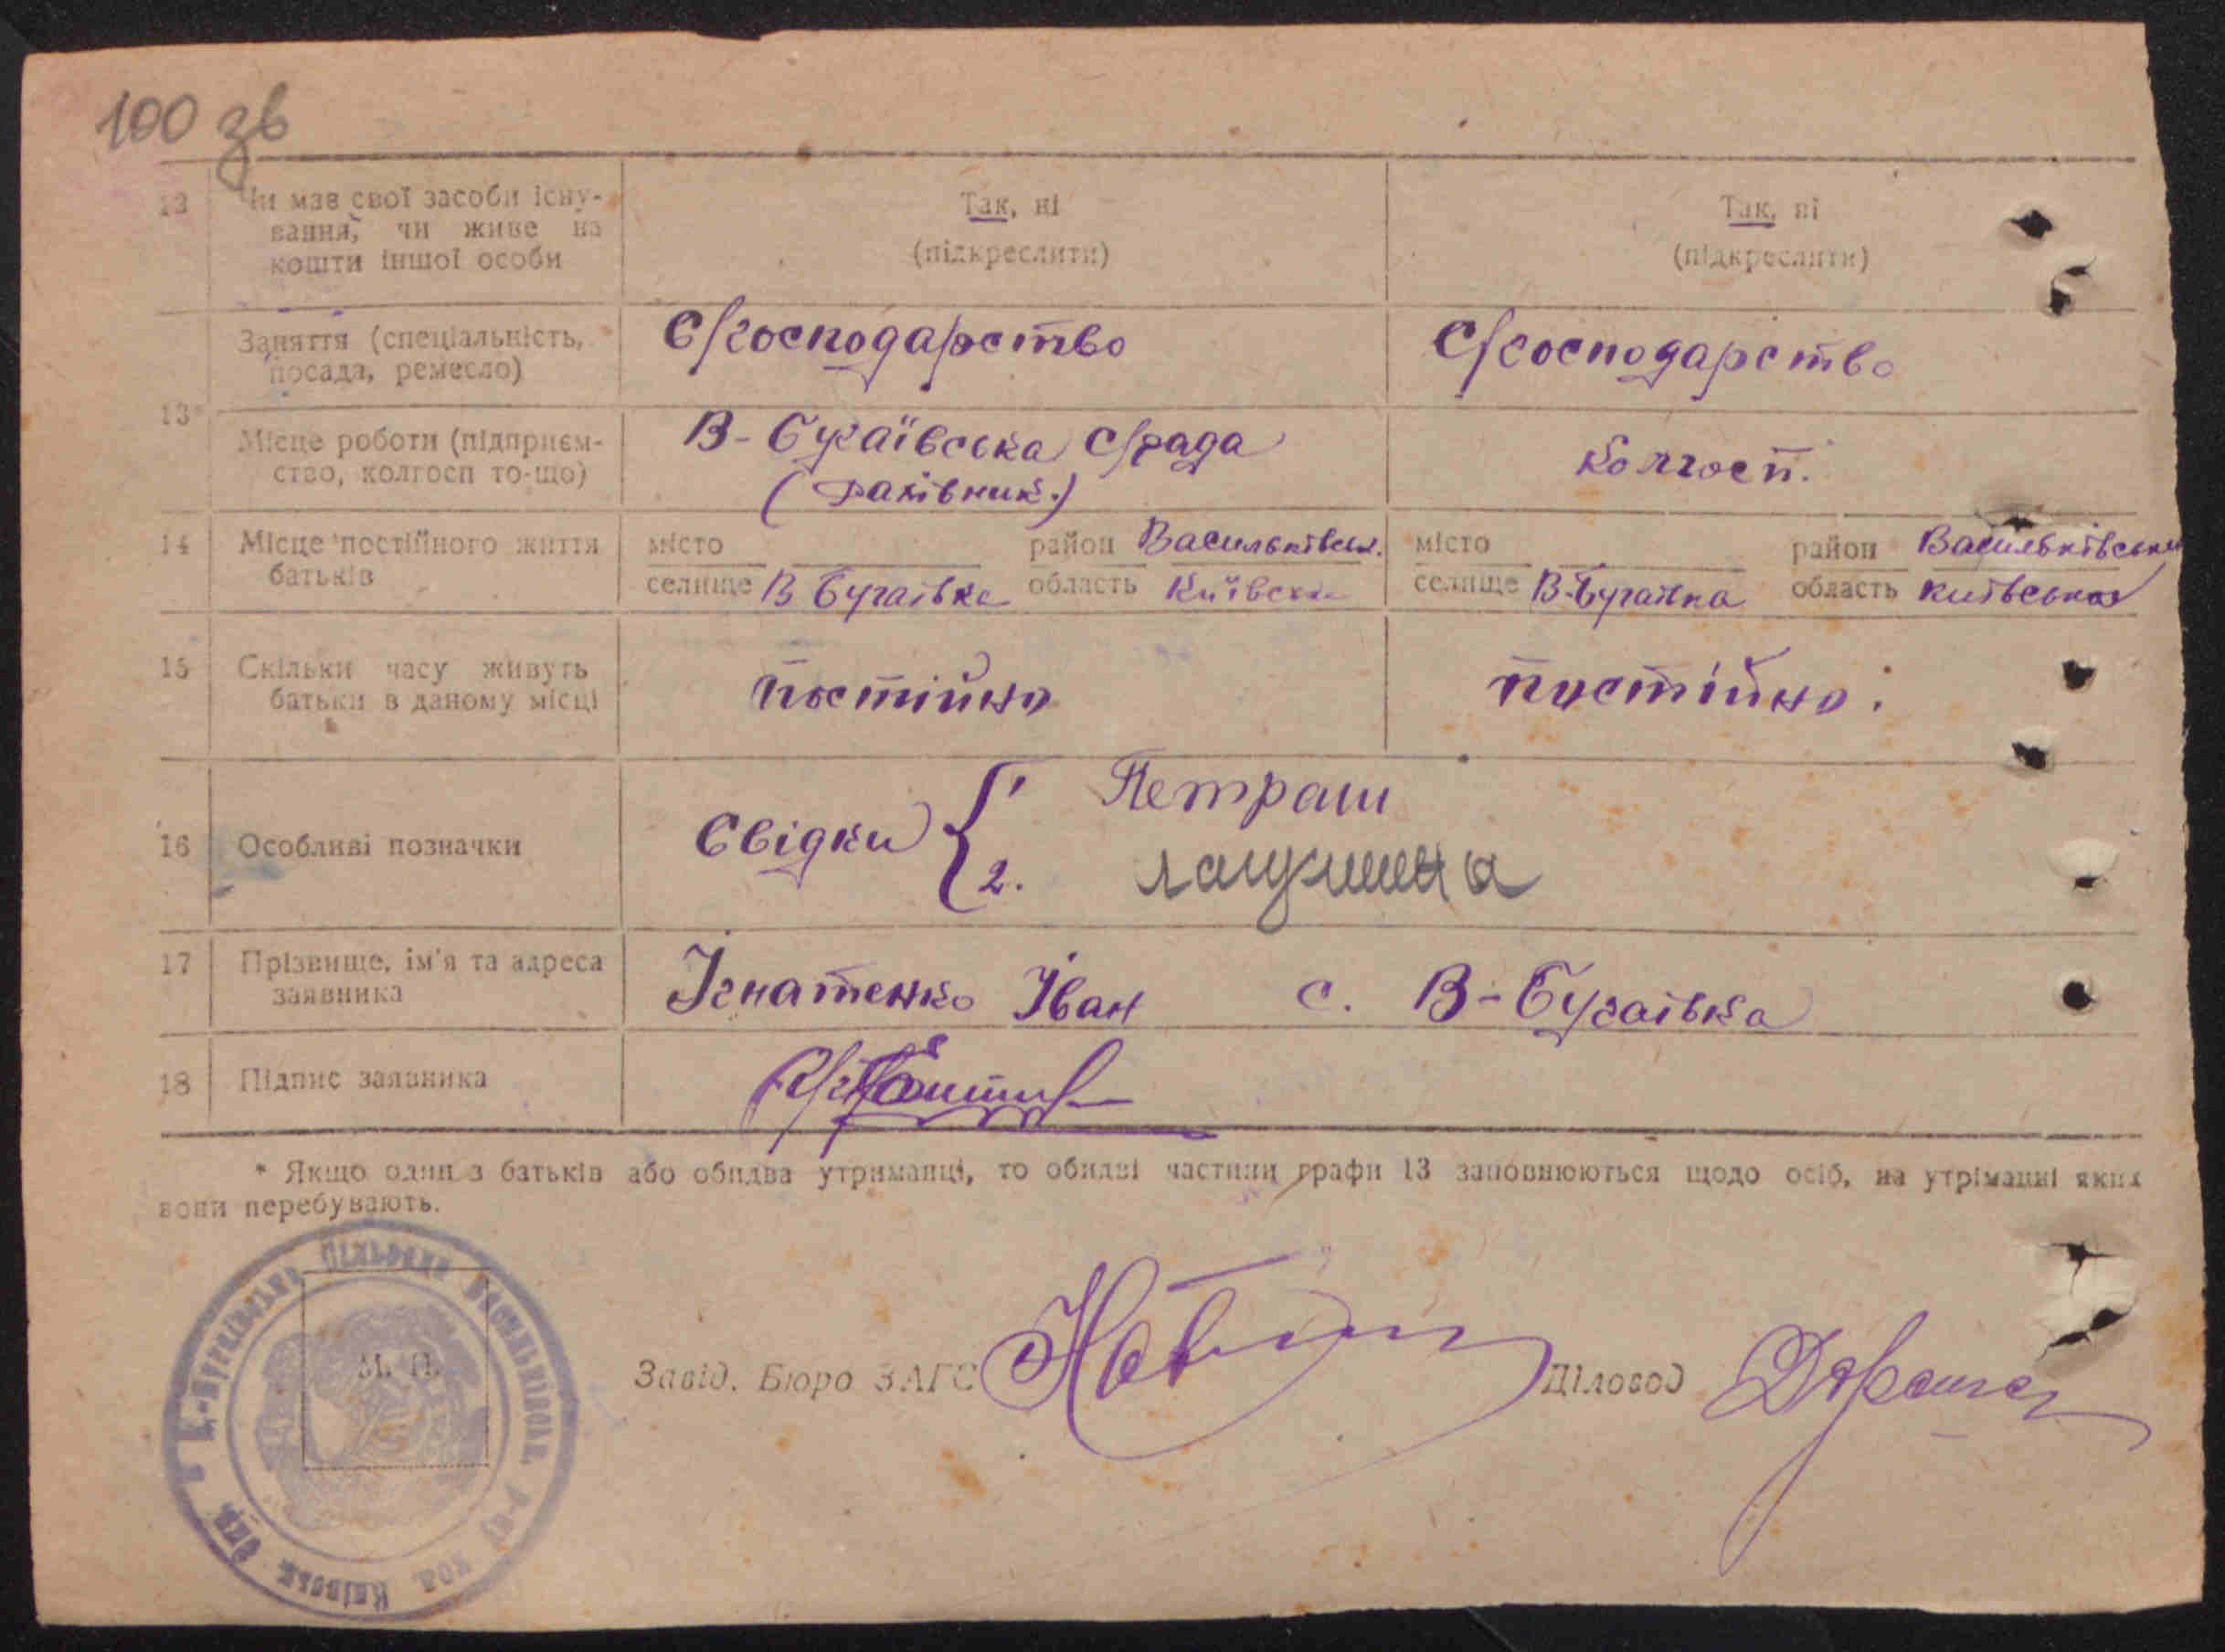 100 зв
12 Чи має свої засоби існу- Так, ні Так, ні
вання, чи живе на (підкреслити) (підкреслити)
кошти іншої особи
Заняття (спеціальність, С/господарство С/господарство
посада, ремесло)
13*
Місце роботи (підприєм- В-Бугаївська с/рада колгосп.
ство, колгосп то-що) (рахівник.)
14 Місце постійного життя місто район Васильківськ. місто район Васильківськ
батьків селище В Бугаївка область Київськ селище В-Бугаївка область Київська
15 Скільки часу живуть постійно постійно.
батьки в даному місці
16 Особливі позначки Свідки { 1 Петраш
2.
17 Прізвище, ім'я та адреса Ігнатенко Іван с. В-Бугаївка
заявника
18 Підпис заявника
* Якщо один з батьків або обидва утриманці, то обидві частини графи 13 заповнюються щодо осіб, на утріманні яких
вони перебувають.
М. П.
Завід. Бюро ЗАГС Діловод